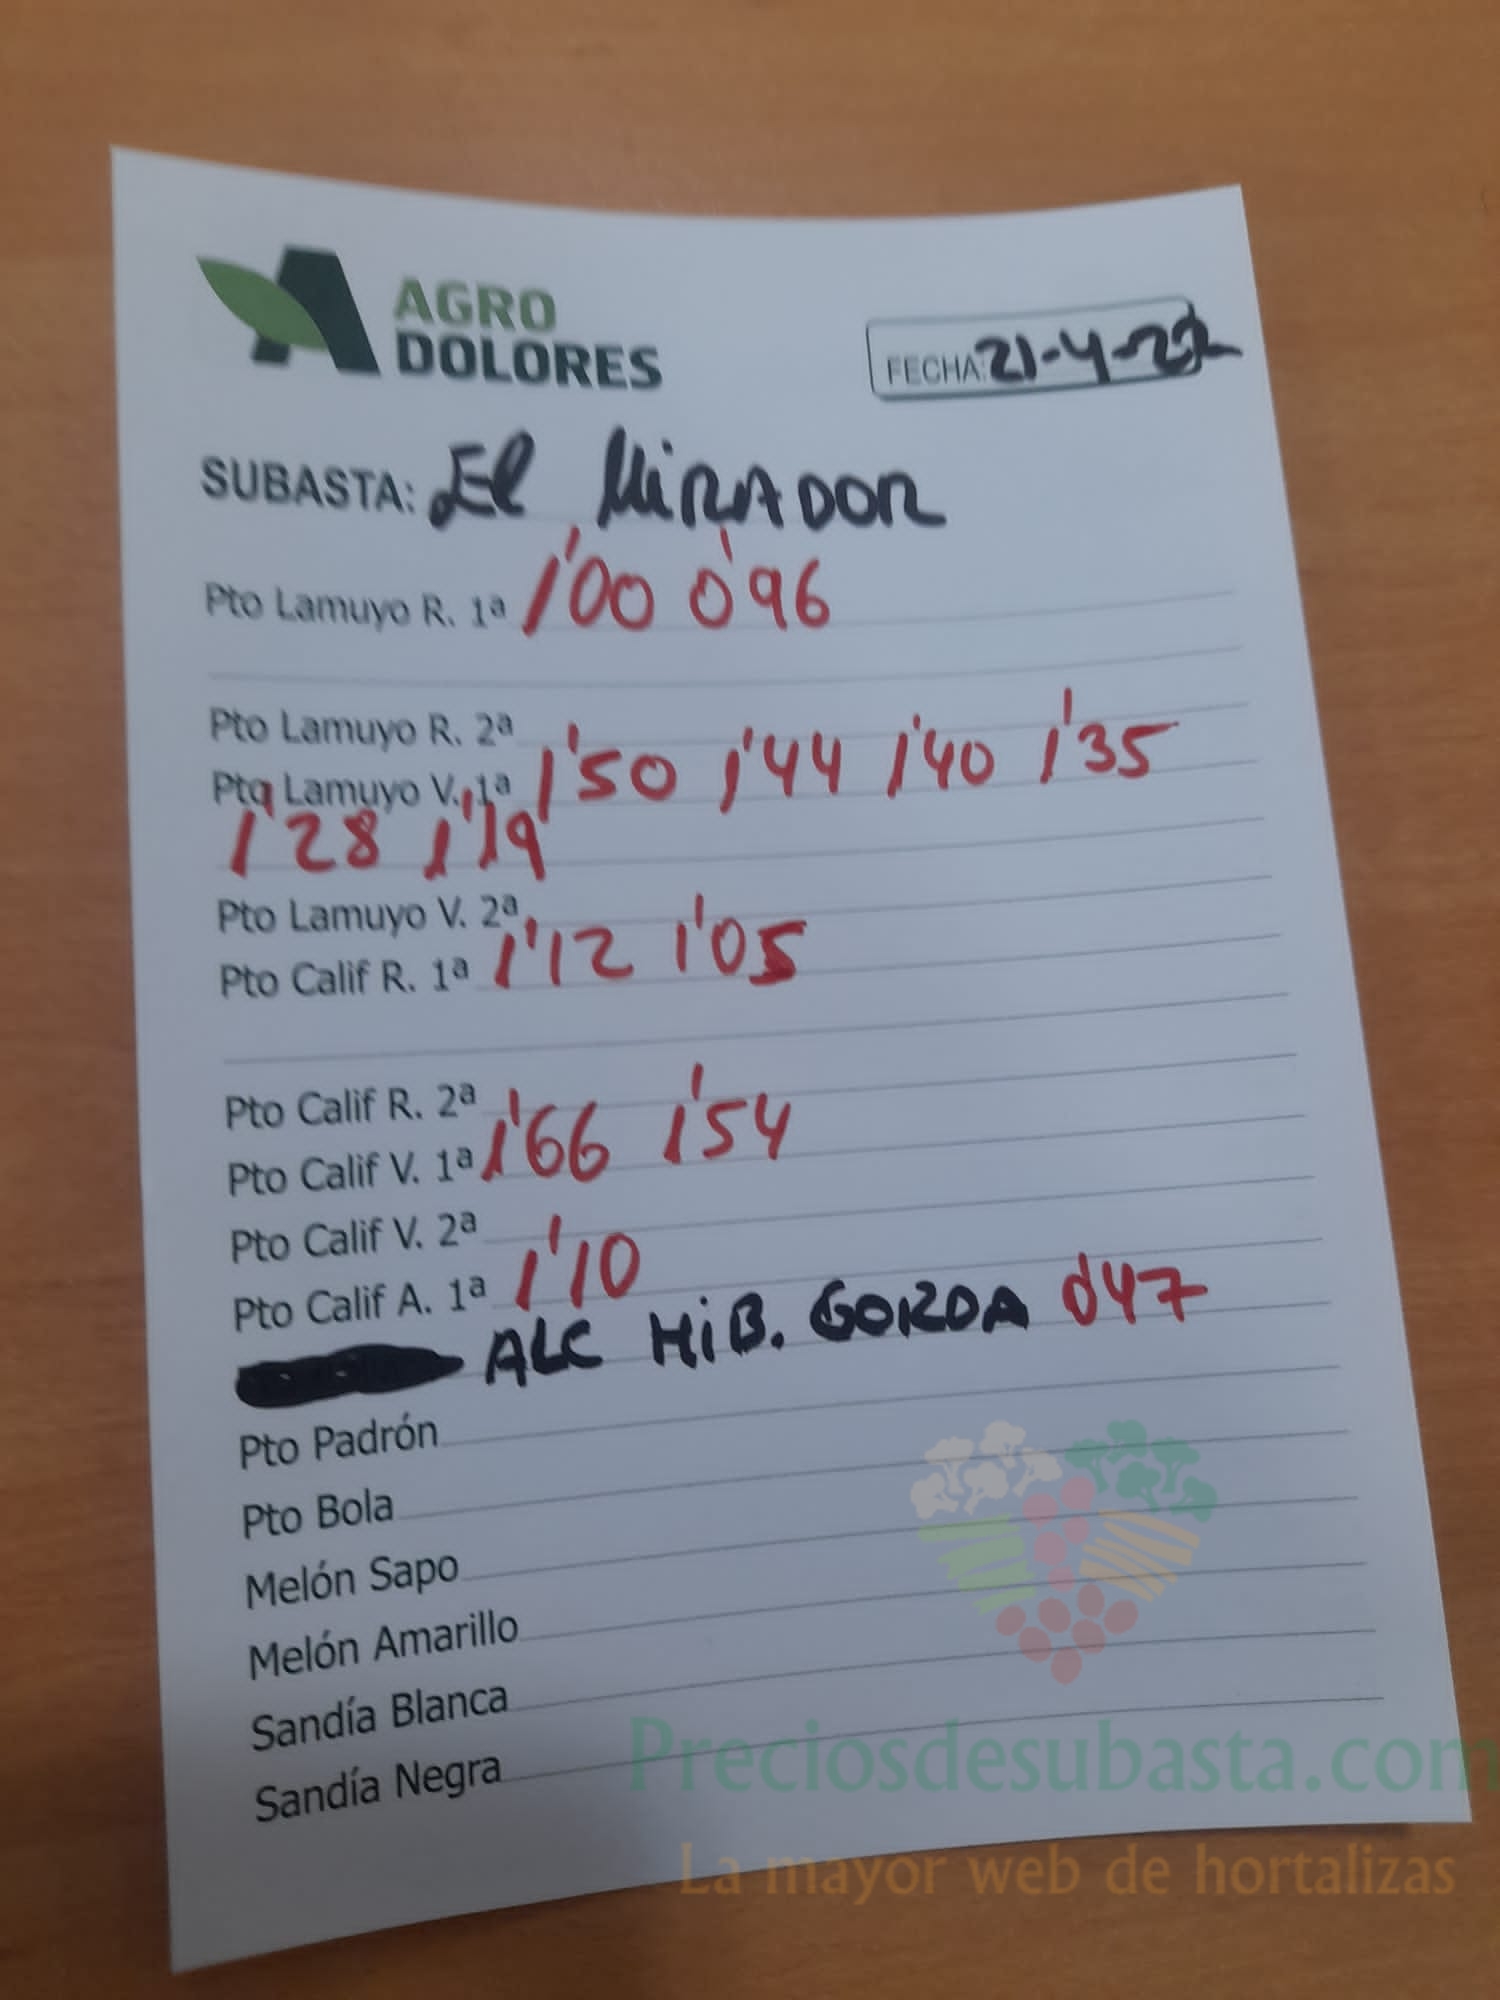 AGRO
DOLORES
FECHA: 21-4-22
SUBASTA: El MiRADOR
Pto Lamuyo R. 1ª 1'00 0'96
Pto Lamuyo R. 2ª
Pto Lamuyo V. 1ª 1'50 1'44 1'40 1'35
1'28 1'19
Pto Lamuyo V. 2ª
Pto Calif R. 1ª 1'12 1'05
Pto Calif R. 2ª
Pto Calif V. 1ª 1'66 1'54
Pto Calif V. 2ª
Pto Calif A. 1ª 1'10
ALC HiB. GORDA 0'47
Pto Padrón
Pto Bola
Melón Sapo
Melón Amarillo
Sandía Blanca
Sandía Negra
Preciosdesubasta.com
La mayor web de hortalizas